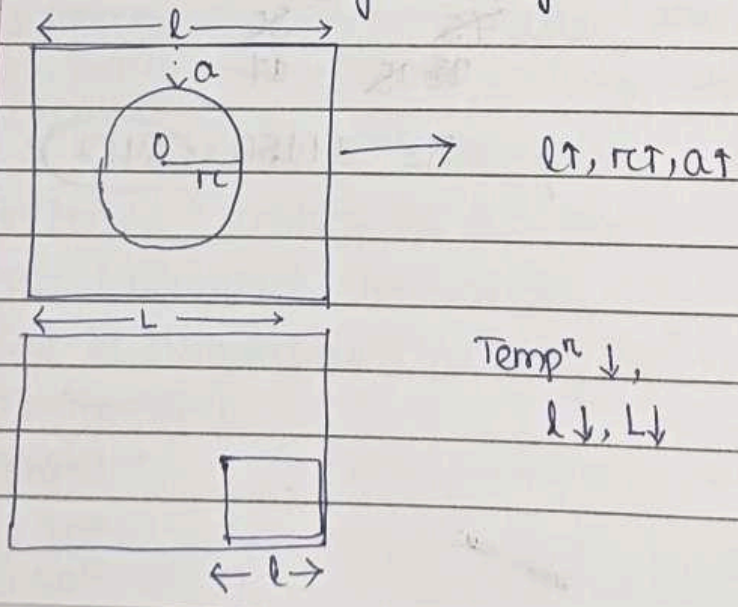 ← l →
a
O
rc
→ l↑, rc↑, a↑
← L →
Tempⁿ ↓,
l↓, L↓
← l →